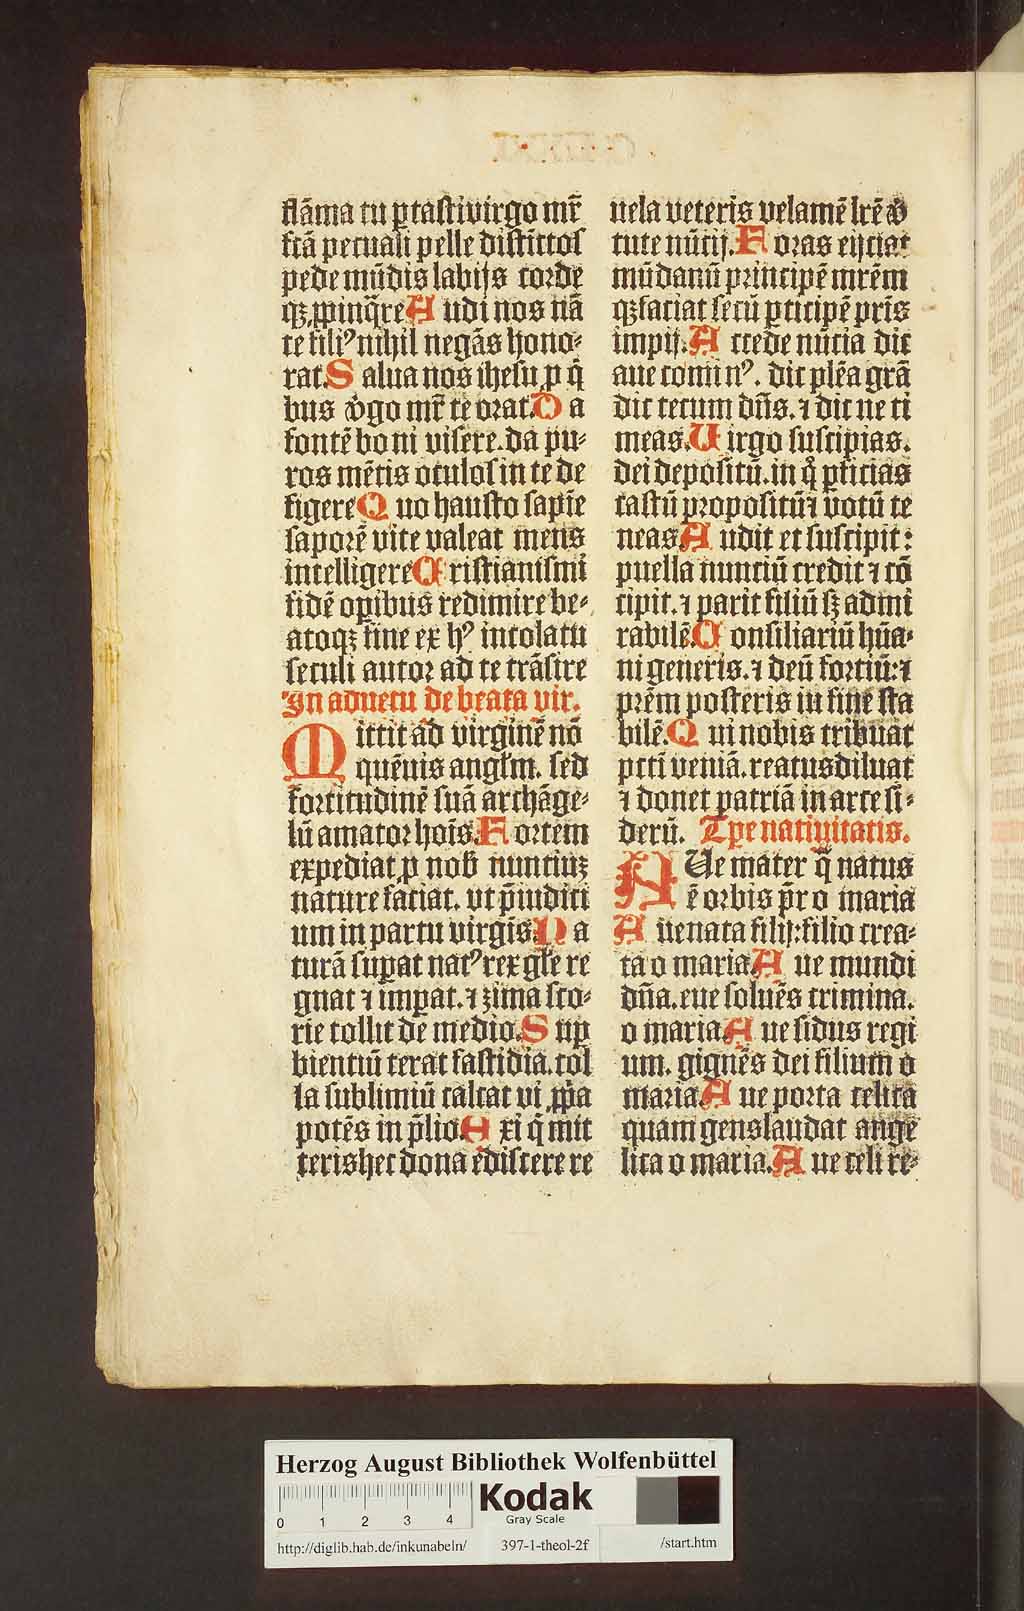 flāma tu p̲ taſti virgo mr̄
ſcā pecuali pelle diſtīctoſ
pede mūdis labijs corde
qꝫ ꝓpinq̄re A udi nos nā
te filiꝰ nihil negās hono⸗
rat. S alua nos iheſu p̲ q̄
bus v̄go mr̄ te orat. D a
fontē boni viſere. da pu⸗
ros mētis oculoſ in te de
figere Q uo hauſto ſapīe
ſaporē vite valeat mens
intelligere C riſtianiſmī
fidē opibus redimire be⸗
atoqꝫ fine ex hꝰ incolatu
ſeculi autor ad te trāſire
In aduētu de beata vir.
M ittit ad virginē nō
quēuis angl̄m. ſed
fortitudinē ſuā archāge⸗
lū amator hoīs. F ortem
expediat p̲ nob̄ nuntiuꝫ
nature faciat. vt p̄iudici
um in partu virgīs. N a
turā ſup̲at natꝰ rex gl̄e re
gnat ⁊ imp̲at. ⁊ zima ſco⸗
rie tollit de medio. S up̲
bientiū terat faſtidia. col
la ſublimiū calcat vi ꝓp̄a
potēs in p̄lio. E xi q̄ mit
teris hec dona ēdiſcere re
uela veteris velamē lr̄ē v̄
tute nūcij. F oras eijciat
mūdanū principē mr̄ēm
qꝫ faciat ſecū p̲ticipē pr̄is
impij. A ccede nūcia dic
aue comīnꝰ. dic plēa grā
dic tecum dn̄s. ⁊ dic ne ti
meas. U irgo ſuſcipias.
dei depoſitū. in q̄ p̲ficias
caſtū propoſitū ⁊ votū te
neas. A udit et ſuſcipit:
puella nunciū credit ⁊ cō
cipit. ⁊ parit filiū ſꝫ admi
rabilē. C onſiliariū hūa⸗
ni generis. ⁊ deū fortiū: ⁊
prēm poſteris in fine ſta
bilē. Q ui nobis tribuat
pcc̄i veniā. reatus diluat
⁊ donet patriā in arce ſi⸗
derū. Tp̲e natiuitatis.
A Ue mater q̄ natus
ē orbis pr̄ o maria
A ue nata filij: filio crea⸗
ta o maria A ue mundi
dn̄a. eue ſoluēs crimina.
o maria A ue ſidus regi
um. gignēs dei filium o
maria. A ue porta celica
quam gens laudat ange
lica o maria. A ue celi re⸗
Herzog August Bibliothek Wolfenbüttel
0 1 2 3 4
Kodak
Gray Scale
http://diglib.hab.de/inkunabeln/ 397-1-theol-2f /start.htm